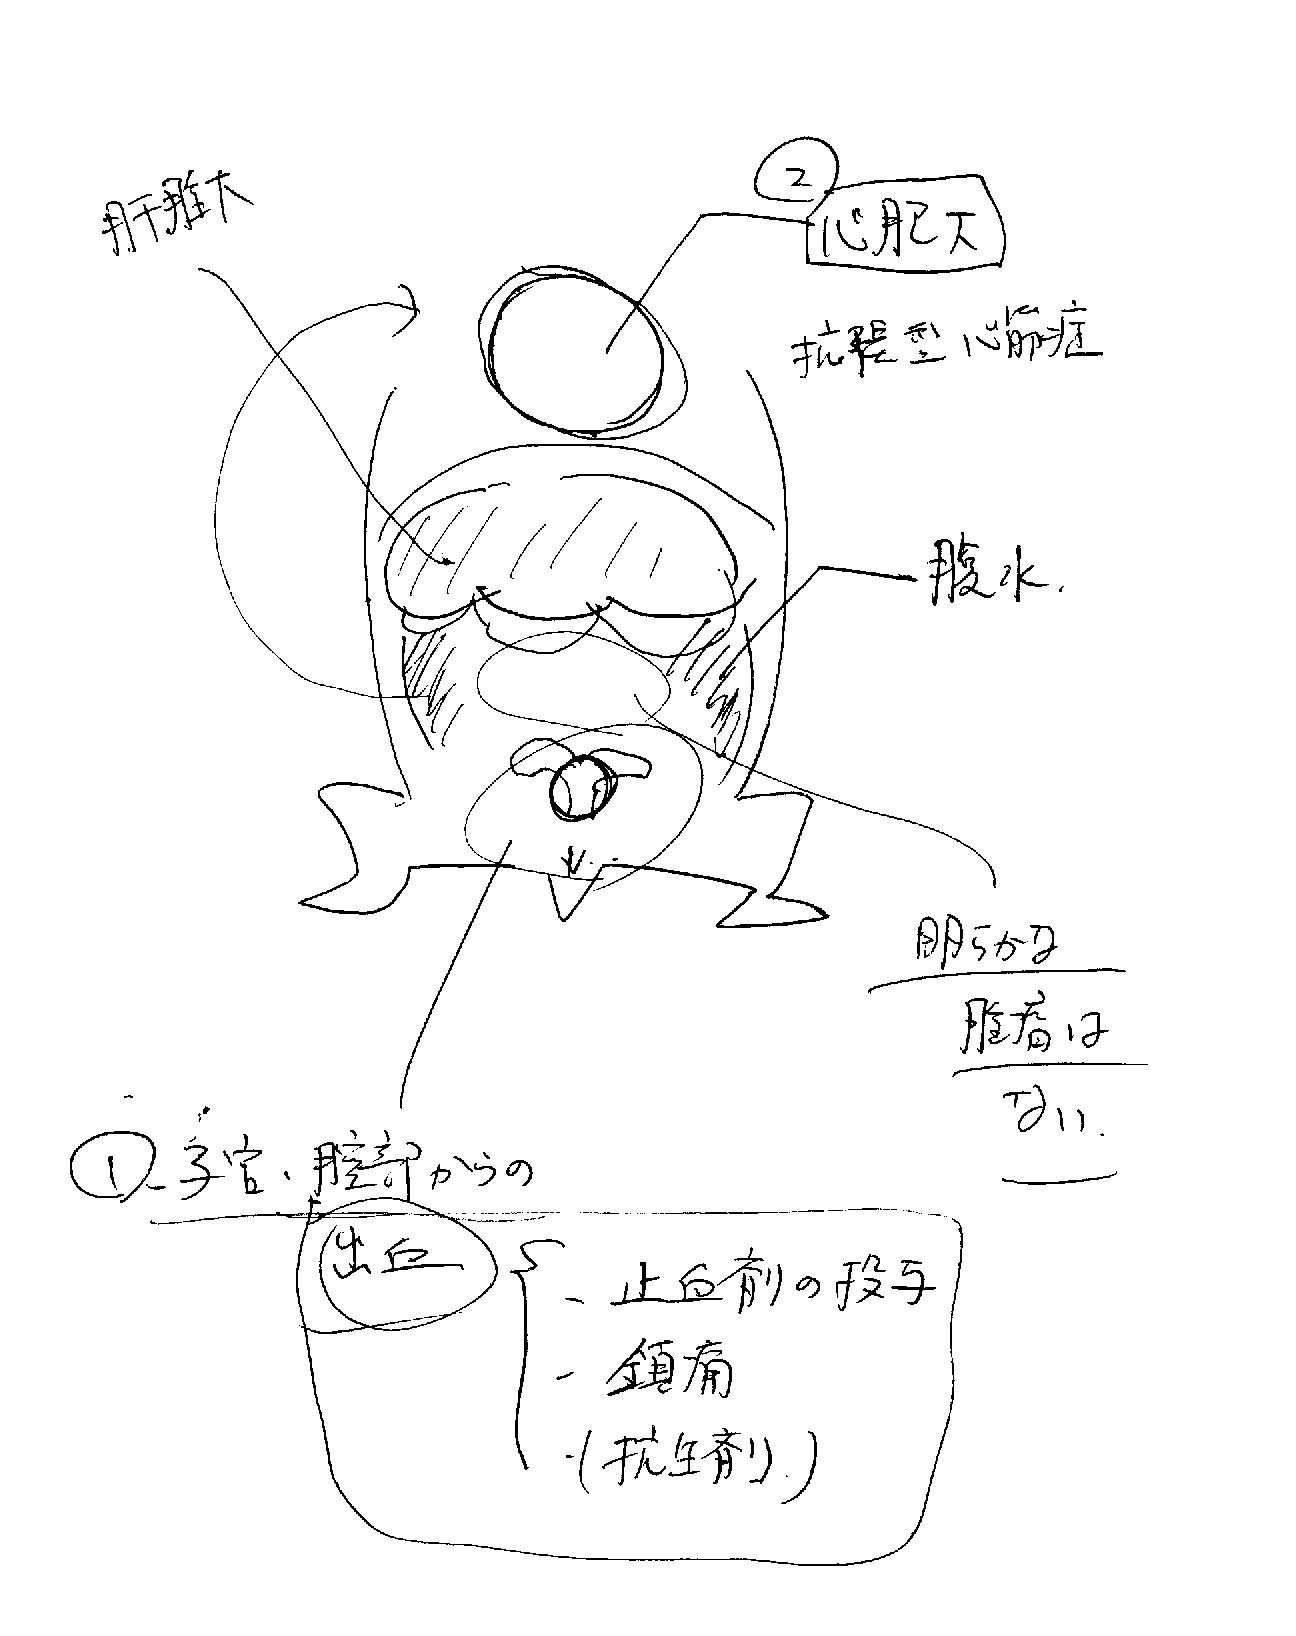 肝腫大
②
心肥大
拡張型心筋症
腹水.
明らかな
腫瘤は
ない.
① 子宮、腟部からの
出血
- 止血剤の投与
- 鎮痛
・(抗生剤.)